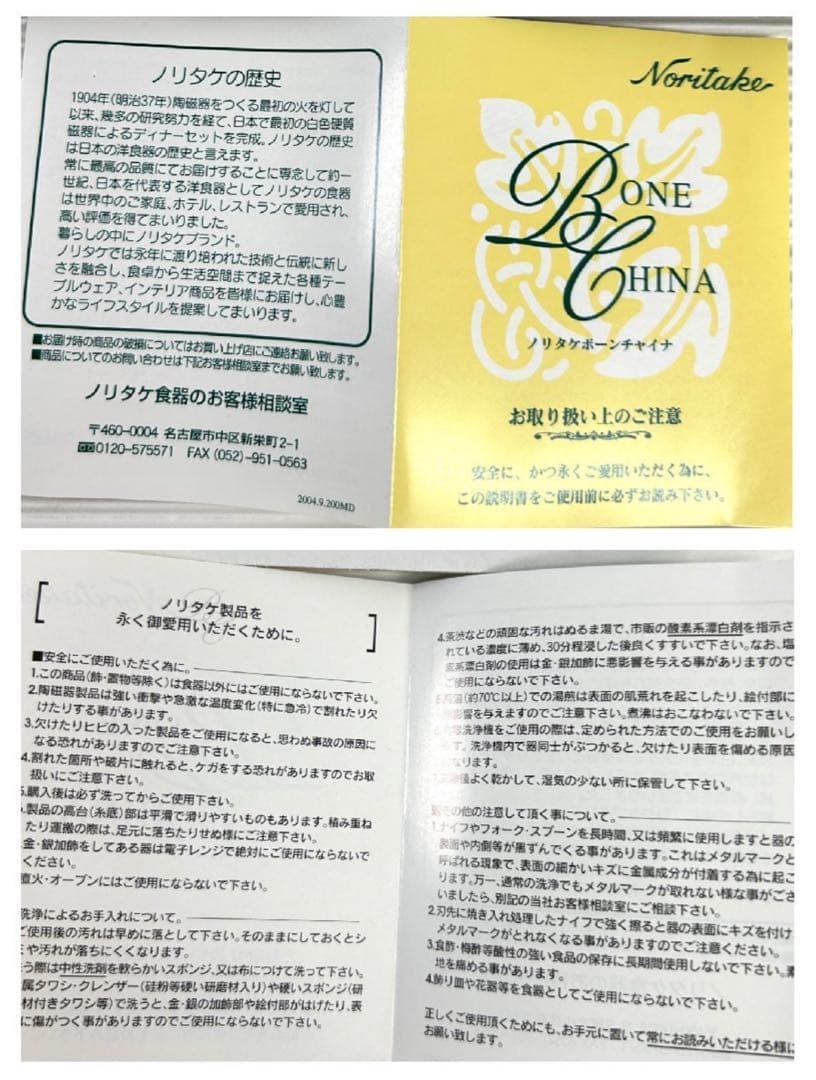 ノリタケの歴史
1904年(明治37年)陶磁器をつくる最初の火を灯して
以来、幾多の研究努力を経て、日本で最初の白色硬質
磁器によるディナーセットを完成。ノリタケの歴史
は日本の洋食器の歴史と言えます。
常に最高の品質にてお届けすることに専念して約一
世紀、日本を代表する洋食器としてノリタケの食器
は世界中のご家庭、ホテル、レストランで愛用され、
高い評価を得てまいりました。
暮らしの中にノリタケブランド。
ノリタケでは永年に渡り培われた技術と伝統に新し
さを融合し、食卓から生活空間まで捉えた各種テー
ブルウェア、インテリア商品を皆様にお届けし、心豊
かなライフスタイルを提案してまいります。
■お届け時の商品の破損についてはお買い上げ店にご連絡お願い致します。
■商品についてのお問い合わせは下記お客様相談室までお願い致します。
ノリタケ食器のお客様相談室
〒460-0004 名古屋市中区新栄町2-1
0120-575571 FAX (052)-951-0563
2004.9.200MD
Noritake
BONE
CHINA
ノリタケボーンチャイナ
お取り扱い上のご注意
安全に、かつ永くご愛用いただく為に、
この説明書をご使用前に必ずお読み下さい。
ノリタケ製品を
永く御愛用いただくために。
■安全にご使用いただく為に。
1.この商品(飾・置物等除く)は食器以外にはご使用にならないで下さい。
2.陶磁器製品は強い衝撃や急激な温度変化(特に急冷)で割れたり欠
けたりする事があります。
3.欠けたりヒビの入った製品をご使用になると、思わぬ事故の原因に
なる恐れがありますのでご注意下さい。
4.割れた箇所や破片に触れると、ケガをする恐れがありますのでお取
扱いにご注意下さい。
5.購入後は必ず洗ってからご使用下さい。
製品の高台(糸底)部は平滑で滑りやすいものもあります。積み重ね
たり運搬の際は、足元に落ちたりせぬ様にご注意下さい。
金・銀加飾をしてある器は電子レンジで絶対にご使用にならないで
ください。
直火・オーブンにはご使用にならないで下さい。
洗浄によるお手入れについて。
ご使用後の汚れは早めに落として下さい。そのままにしておくとシ
ミや汚れが落ちにくくなります。
う際は中性洗剤を軟らかいスポンジ、又は布につけて洗って下さい。
属タワシ・クレンザー(硅粉等硬い研磨材入り)や硬いスポンジ(研
材付きタワシ等)で洗うと、金・銀の加飾部や絵付部がはげたり、表
に傷がつく事がありますのでご使用にならないで下さい。
4.茶渋などの頑固な汚れはぬるま湯で、市販の酸素系漂白剤を指示さ
れている濃度に薄め、30分程浸した後良くすすいで下さい。なお、塩
素系漂白剤の使用は金・銀加飾に悪影響を与える事がありますので
ご使用にならないで下さい。
高温(約70℃以上)での湯煎は表面の肌荒れを起こしたり、絵付部に
影響を与えますのでご注意下さい。煮沸はおこなわないで下さい。
洗浄機をご使用の際は、定められた方法でのご使用をお願いし
ます。洗浄機内で器同士がぶつかると、欠けたり表面を傷める原因
になります。
後よく乾かして、湿気の少ない所に保管して下さい。
■その他の注意して頂く事について。
1.ナイフやフォーク・スプーンを長時間、又は頻繁に使用しますと器の
表面や内側等が黒ずんでくる事があります。これはメタルマークと
呼ばれる現象で、表面の細かいキズに金属成分が付着する為に起こ
ります。万一、通常の洗浄でもメタルマークが取れない様な事がござ
いましたら、別記の当社お客様相談室にご相談下さい。
2.刃先に焼き入れ処理したナイフで強く擦ると器の表面にキズを付け
メタルマークがとれなくなる事がありますのでご注意ください。
3.食酢・梅酢等酸性の強い食品の保存に長期間使用しないで下さい。素
地を痛める事があります。
4.飾り皿や花器等を食器としてご使用にならないで下さい。
正しくご使用頂くためにも、お手元に置いて常にお読みいただける様に
お願い致します。